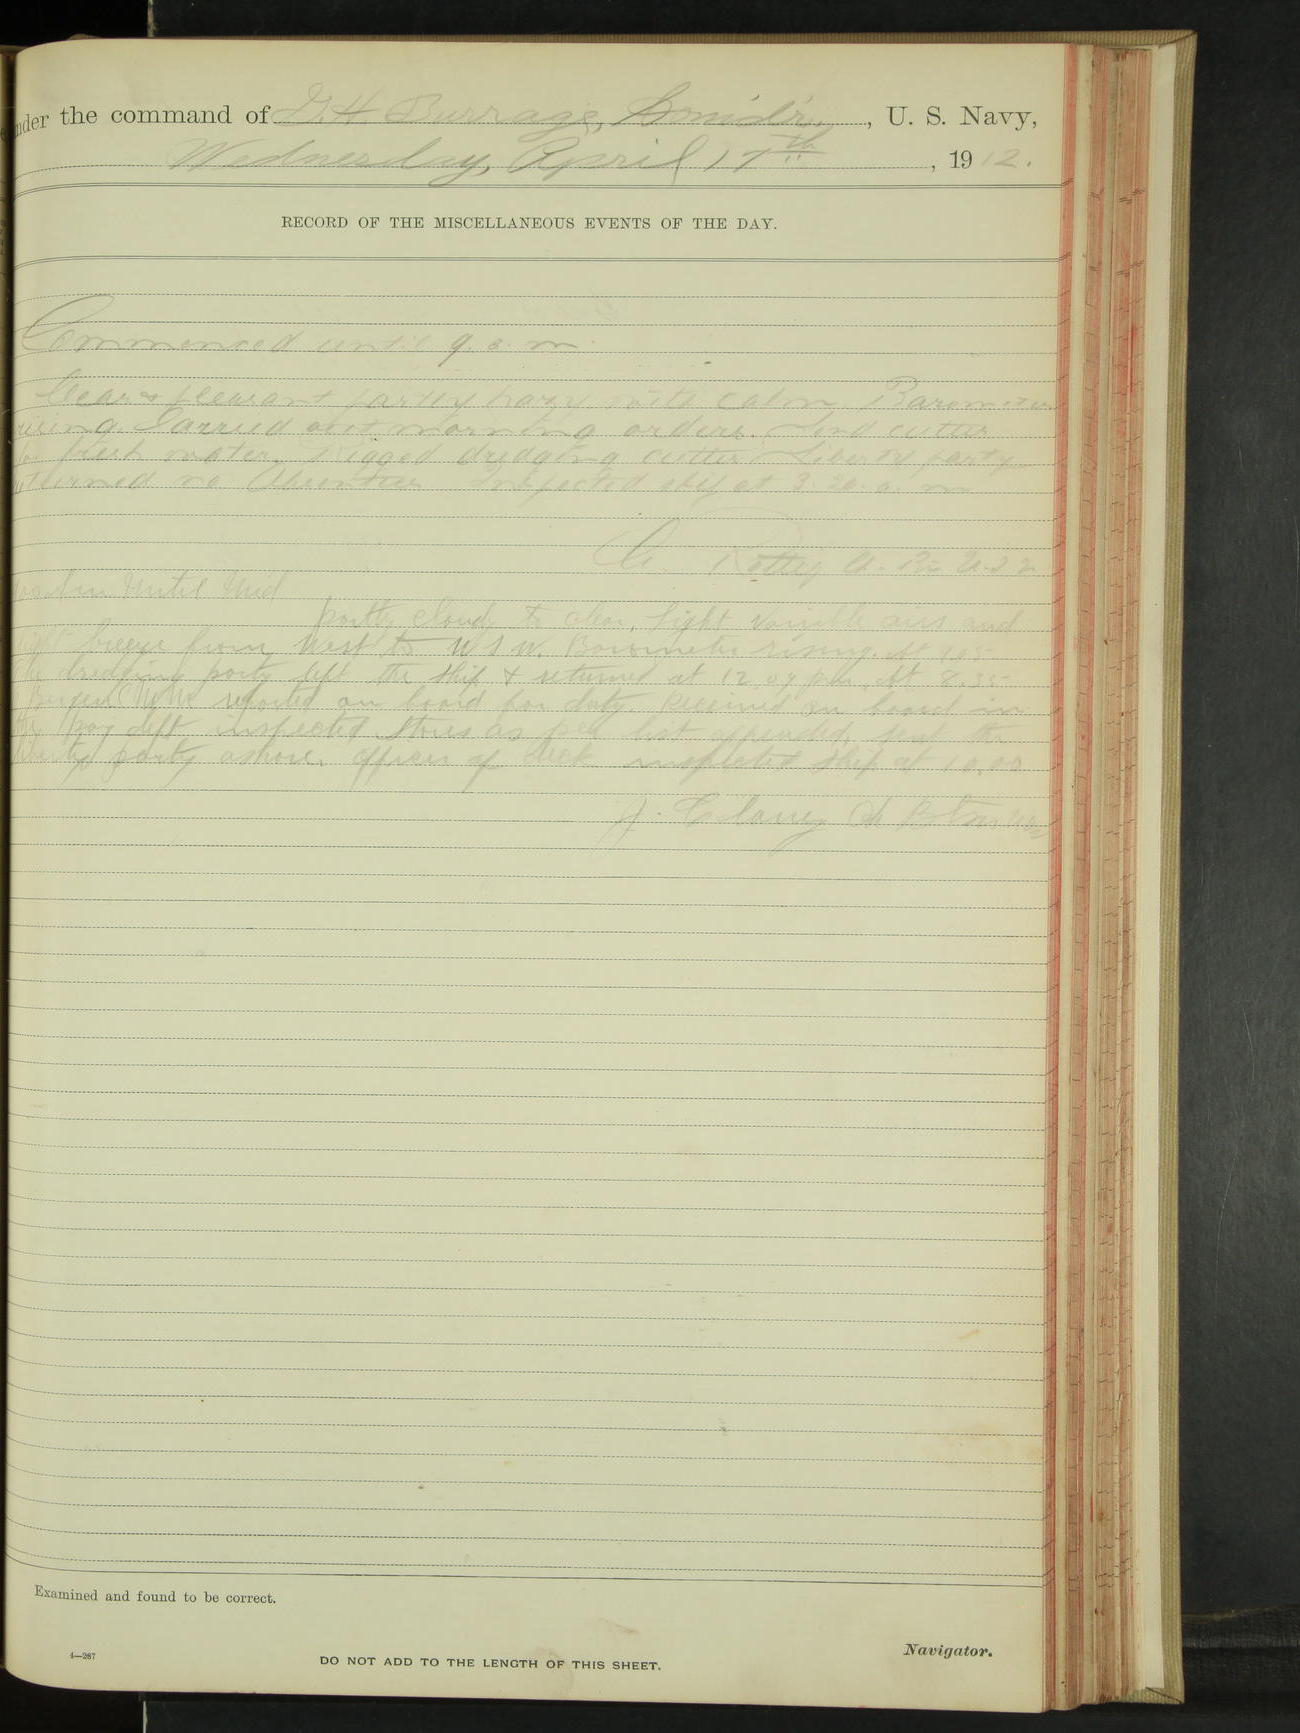 under the command of G. H. Burrage, Comd'r., U. S. Navy,
Wednesday, April 17th, 1912.
RECORD OF THE MISCELLANEOUS EVENTS OF THE DAY.
Commenced until 9. a. m.
Clear & pleasant partly hazy with calm. Barometer
rising. Carried out morning orders. Send cutter
for fresh water. Rigged dredging cutter. Liberty party
returned no absentees. Inspected ship at 3.20. a. m
until Mid
Partly cloudy to clear, light variable airs and
light breeze from West to W S W. Barometer rising. At
the dredging party left the ship & returned at 12.09 pm. At 8.35
reported on board for duty. Received on board in
the pay dept. inspected stores as per list appended. Sent the
liberty party ashore. Officer of deck inspected ship at 10.00
Examined and found to be correct.
4—267
DO NOT ADD TO THE LENGTH OF THIS SHEET.
Navigator.